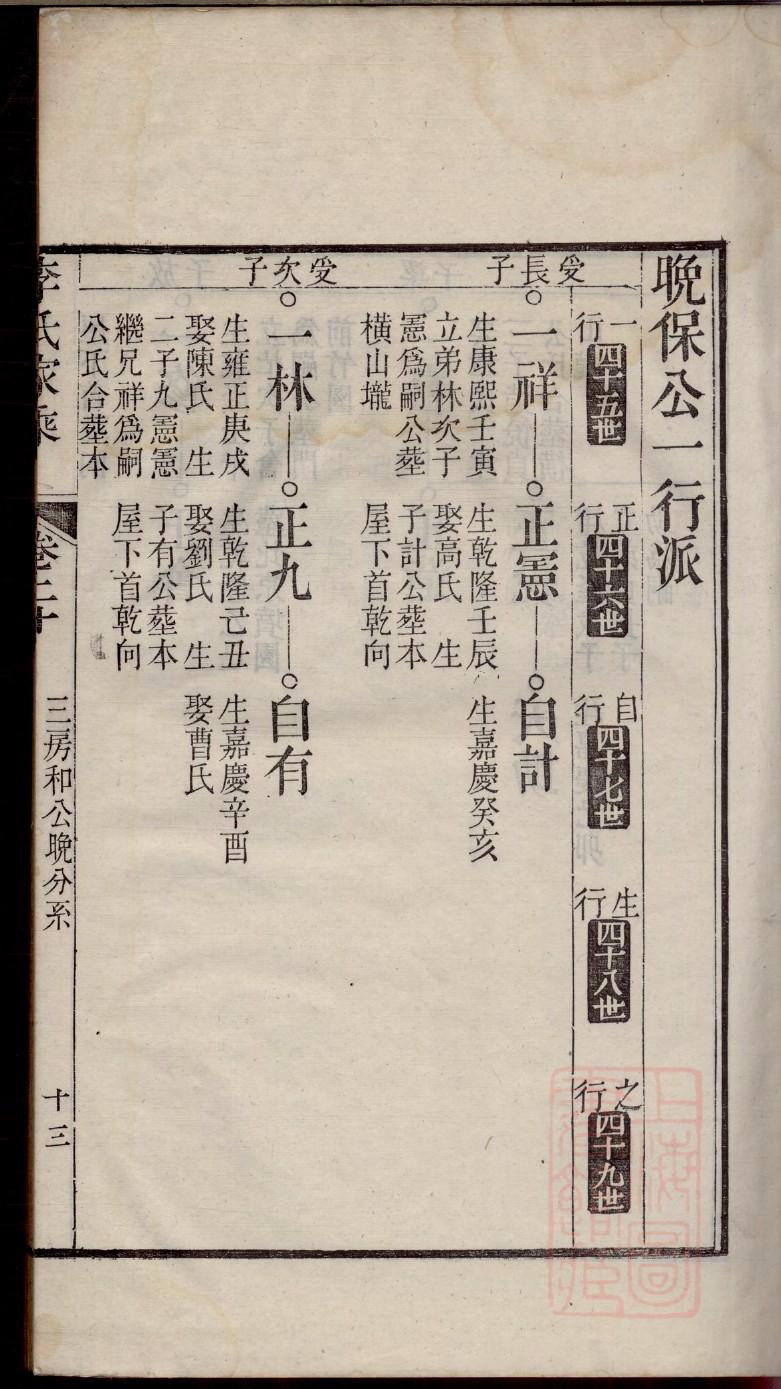 晚保公一行派
一行 四十五世
正行 四十六世
自行 四十七世
生行 四十八世
之行 四十九世
受長子
一祥
生康熙壬寅
立弟林次子
憲爲嗣公葬
橫山壠
正憲
生乾隆壬辰
娶高氏 生
子計公葬本
屋下首乾向
自計
生嘉慶癸亥
受次子
一林
生雍正庚戌
娶陳氏 生
二子九憲憲
繼兄祥爲嗣
公氏合葬本
正九
生乾隆己丑
娶劉氏 生
子有公葬本
屋下首乾向
自有
生嘉慶辛酉
娶曹氏
李氏家乘
卷二十
三房和公晚分系
十三